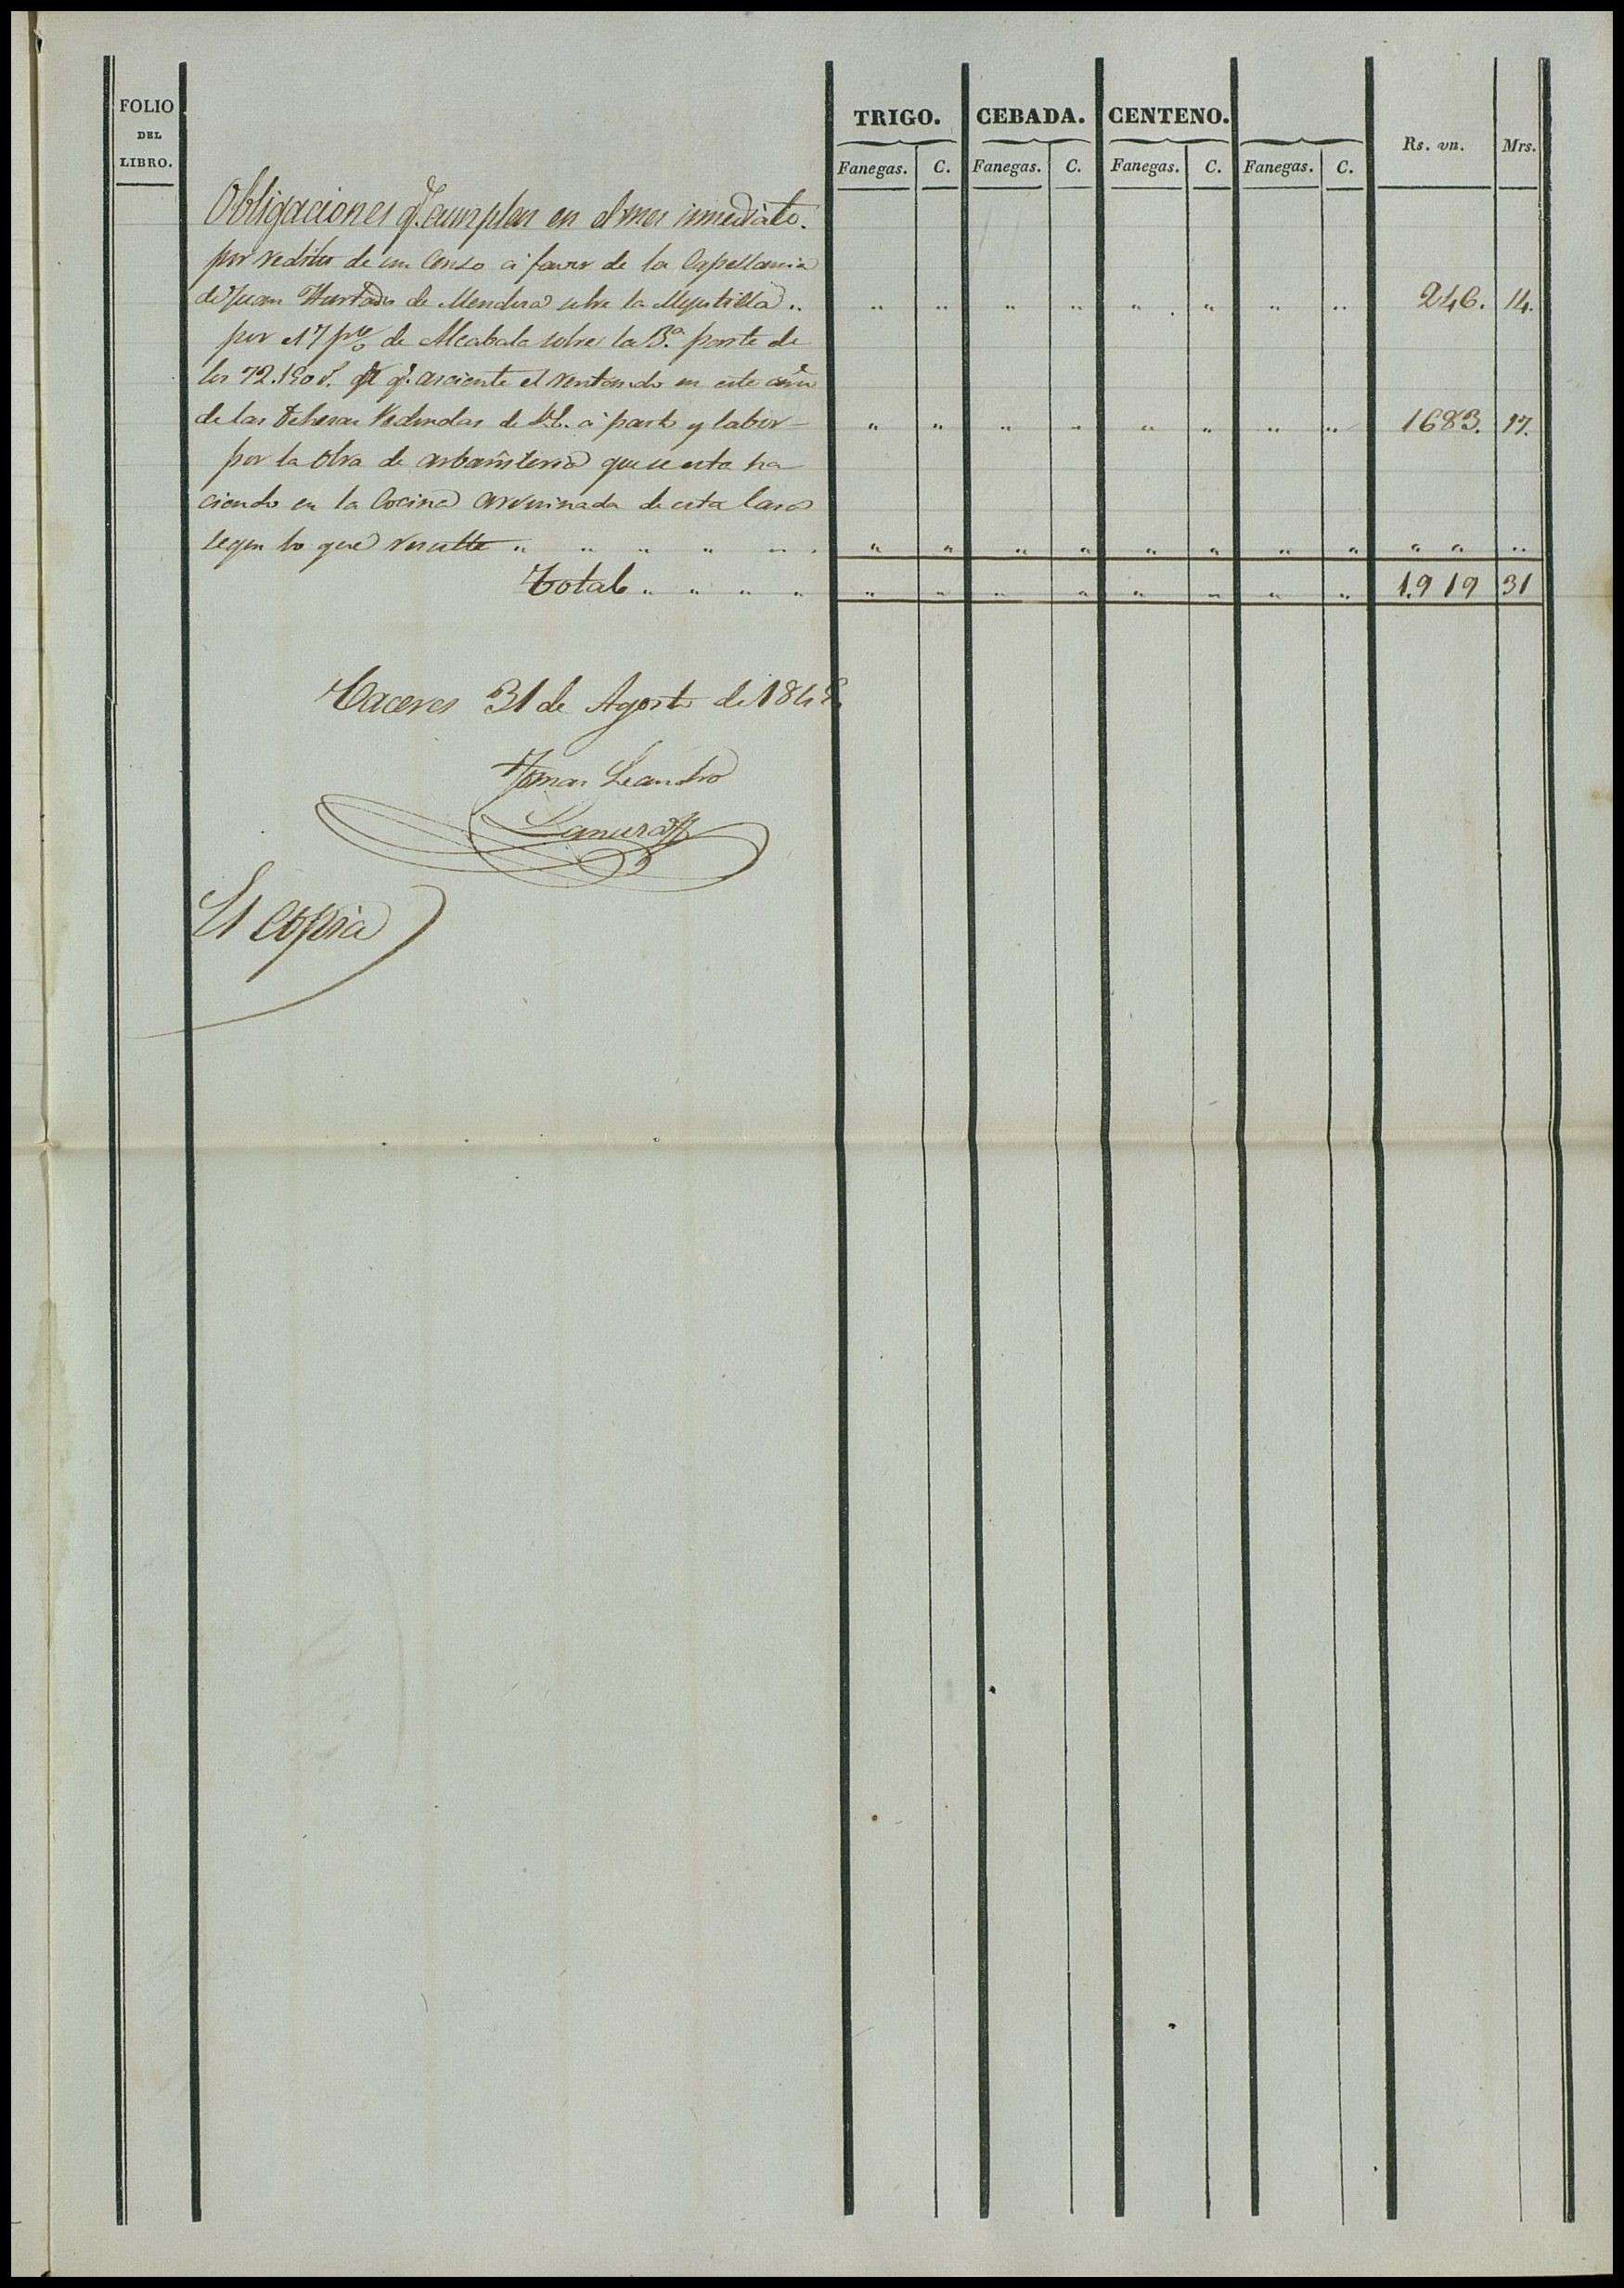 FOLIO
DEL
LIBRO.
TRIGO. CEBADA. CENTENO.
Rs. vn. Mrs.
Fanegas. C. Fanegas. C. Fanegas. C. Fanegas. C.
Obligaciones q.e cumplen en el mes inmediato.
por reditos de un Censo á favor de la Capellania
de Juan Hurtado de Mendoza sobre la " " " " " " " " 246. 14.
por el 7 p% de Alcabala sobre la 3.a parte de
los 72.150 r.s q.e asciente el rentando en este año
de las Dehesas Redondas de V.E. á pasto y labor " " " " " " " " 1683. 17.
por la Obra de arbañileria que se esta ha
ciendo en la Cocina arruinada de esta Casa
segun lo que resulte " " " " " " " " " " " " " " " "
Total " " " " " " " " " " " " 1.919 31
Caceres 31 de Agosto de 184
Tomas Leandro
Es Copia